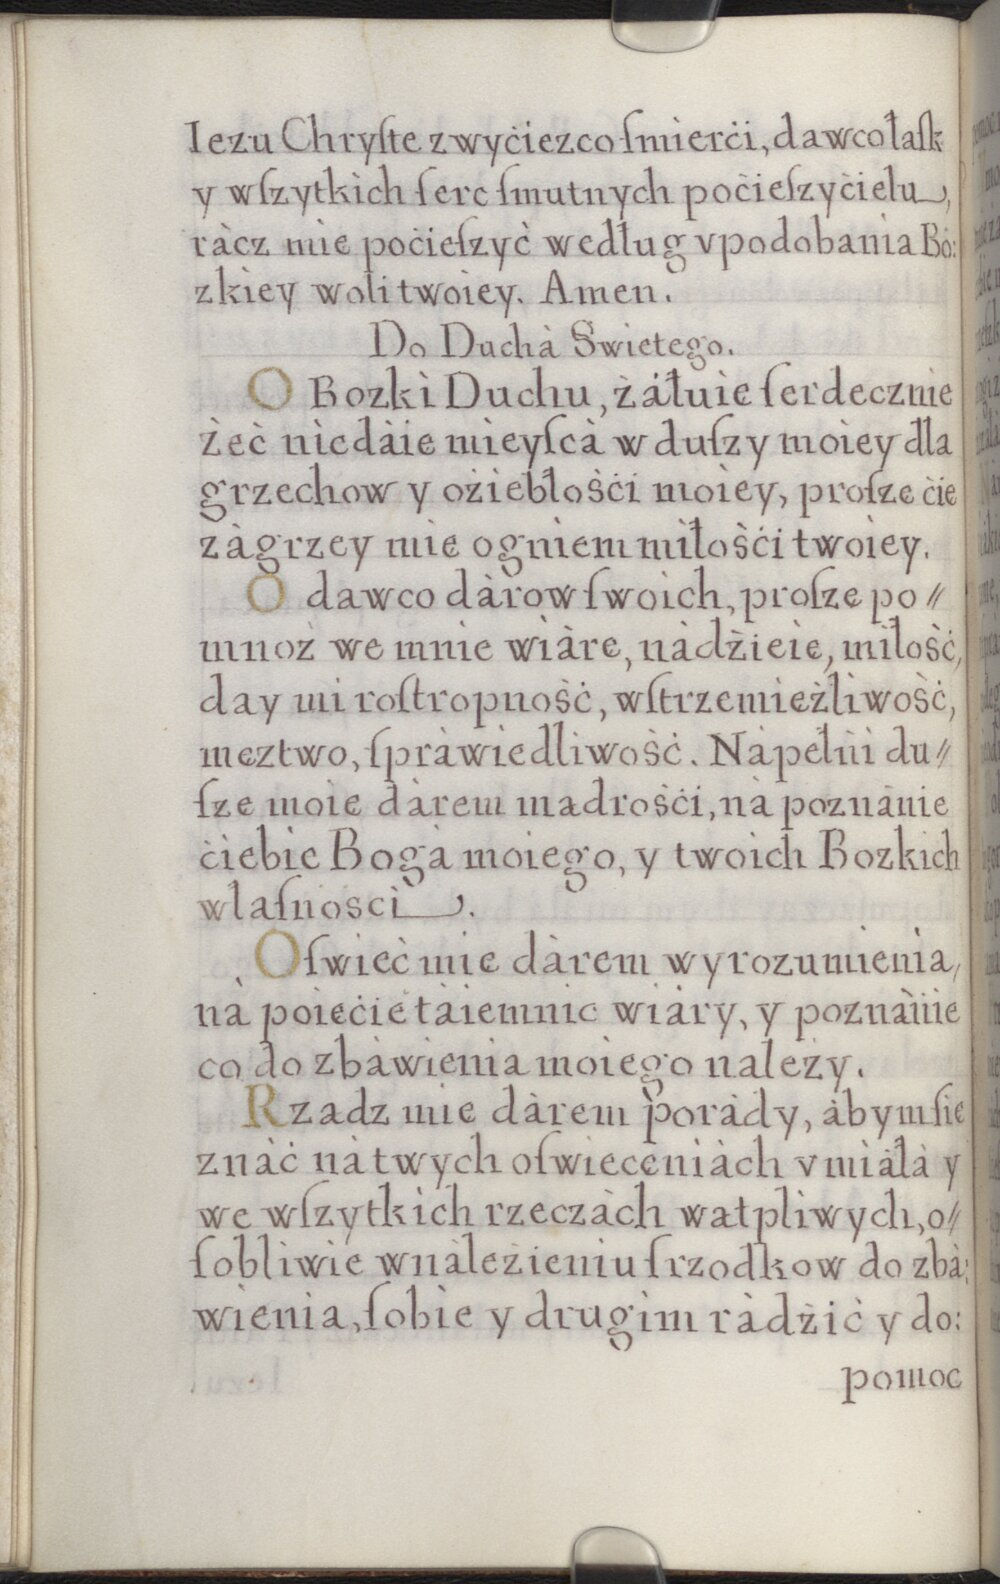 Iezu Chryſte zwyćiezco ſmierći, dawco łaſk
y wſzytkich ſerc ſmutnych poċieſzyċielu,
ràcz mie poċieſzyċ według vpodobania Bo:
zkiey woli twoiey. Amen.
Do Duchà Swietego.
O Bozki Duchu, żáłuie ſerdecznie
żeċ niedàie mieyſcà w duſzy moiey dla
grzechow y oziebłośċi moiey, proſze ċie
zàgrzey mie ogniem miłośċi twoiey.
O dawco dàrow ſwoich, proſze po//
mnoż we mnie wiàre, nàdżieie, miłośċ,
day mi roſtropnośċ, wſtrzemieżliwośċ,
meztwo, ſpràwiedliwośċ. Nàpełni du//
ſze moie dàrem madrośċi, nà poznànie
ċiebie Bogà moiego, y twoich Bozkich
właſnosci.
Oſwieċ mie dàrem wyrozumienia,
nà poieċie tàiemnic wiàry, y poznànie
co do zbàwienia moiego należy.
Rzadz mie dàrem poràdy, àbym ſie
znàċ nà twych oſwieceniàch vmiàłà y
we wſzytkich rzeczàch watpliwych, o//
ſobliwie w nàleżieniu ſrzodkow do zbà:
wienia, ſobie y drugim ràdżiċ y do:
pomoc